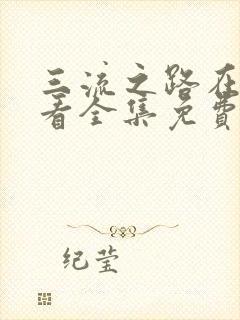 三流之路在
看全集免费
纪莹